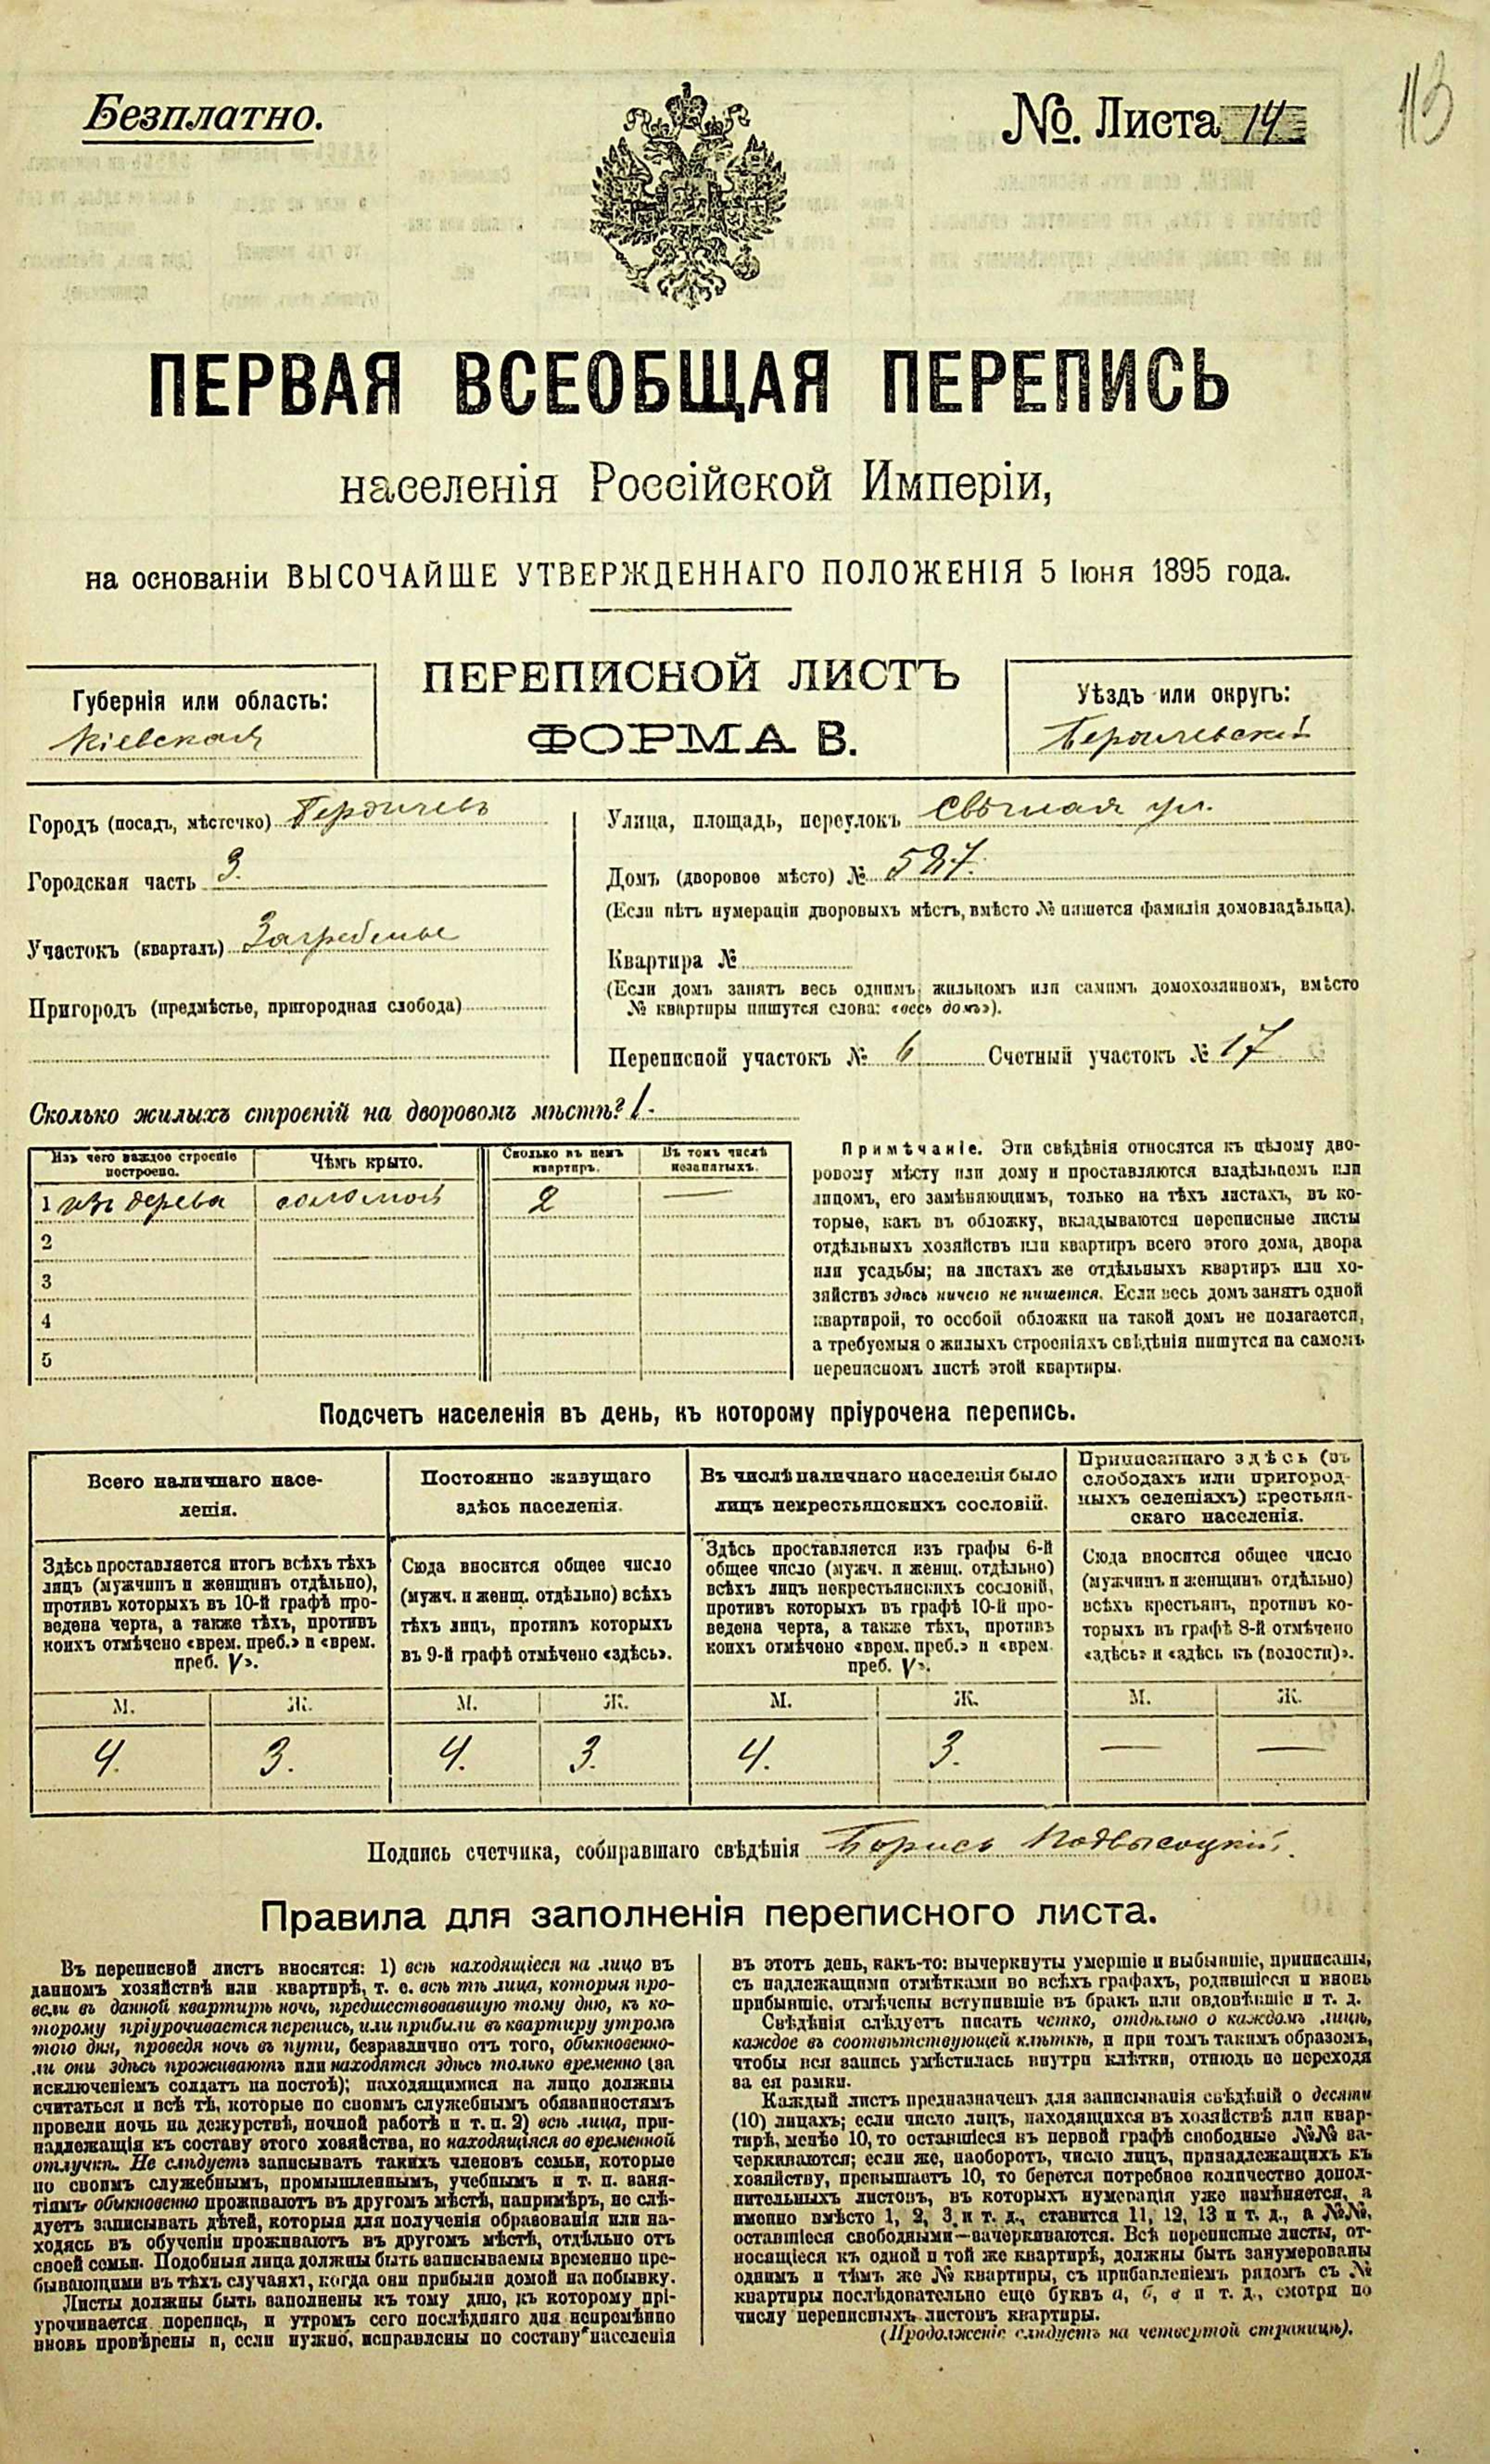 Безплатно.
№. Листа 14
113
ПЕРВАЯ ВСЕОБЩАЯ ПЕРЕПИСЬ
населенія Россійской Имперіи,
на основаніи ВЫСОЧАЙШЕ УТВЕРЖДЕННАГО ПОЛОЖЕНІЯ 5 Іюня 1895 года.
ПЕРЕПИСНОЙ ЛИСТЪ
ФОРМА В.
Губернія или область:
Кіевская
Уѣздъ или округъ:
Бердичевскій
Городъ (посадъ, мѣстечко) Бердичевъ
Городская часть 3.
Участокъ (кварталъ) Загребелье
Пригородъ (предмѣстье, пригородная слобода)
Улица, площадь, переулокъ ул.
Домъ (дворовое мѣсто) № 527.
(Если нѣтъ нумераціи дворовыхъ мѣстъ, вмѣсто № пишется фамилія домовладѣльца).
Квартира №
(Если домъ занятъ весь однимъ жильцомъ или самимъ домохозяиномъ, вмѣсто
№ квартиры пишутся слова: «весь домъ»).
Переписной участокъ № 6 Счетный участокъ № 17
Сколько жилыхъ строеній на дворовомъ мѣстѣ? 1.
Изъ чего каждое строеніе
построено.
Чѣмъ крыто.
Сколько въ немъ
квартиръ.
Въ томъ числѣ
незанятыхъ.
1 изъ дерева соломой 2 —
2
3
4
5
Примѣчаніе. Эти свѣдѣнія относятся къ цѣлому дво-
ровому мѣсту или дому и проставляются владѣльцемъ или
лицомъ, его замѣняющимъ, только на тѣхъ листахъ, въ ко-
торые, какъ въ обложку, вкладываются переписные листы
отдѣльныхъ хозяйствъ или квартиръ всего этого дома, двора
или усадьбы; на листахъ же отдѣльныхъ квартиръ или хо-
зяйствъ здѣсь ничего не пишется. Если весь домъ занятъ одной
квартирой, то особой обложки на такой домъ не полагается,
а требуемыя о жилыхъ строеніяхъ свѣдѣнія пишутся на самомъ
переписномъ листѣ этой квартиры.
Подсчетъ населенія въ день, къ которому пріурочена перепись.
Всего наличнаго насе-
ленія.
Постоянно живущаго
здѣсь населенія.
Въ числѣ наличнаго населенія было
лицъ некрестьянскихъ сословій.
Приписаннаго здѣсь (въ
слободахъ или пригород-
ныхъ селеніяхъ) крестьян-
скаго населенія.
Здѣсь проставляется итогъ всѣхъ тѣхъ
лицъ (мужчинъ и женщинъ отдѣльно),
противъ которыхъ въ 10-й графѣ про-
ведена черта, а также тѣхъ, противъ
коихъ отмѣчено «врем. преб.» и «врем.
преб. V».
Сюда вносится общее число
(мужч. и женщ. отдѣльно) всѣхъ
тѣхъ лицъ, противъ которыхъ
въ 9-й графѣ отмѣчено «здѣсь».
Здѣсь проставляется изъ графы 6-й
общее число (мужч. и женщ. отдѣльно)
всѣхъ лицъ некрестьянскихъ сословій,
противъ которыхъ въ графѣ 10-й про-
ведена черта, а также тѣхъ, противъ
коихъ отмѣчено «врем. преб.» и «врем.
преб. V».
Сюда вносится общее число
(мужчинъ и женщинъ отдѣльно)
всѣхъ крестьянъ, противъ ко-
торыхъ въ графѣ 8-й отмѣчено
«здѣсь» и «здѣсь къ (волости)».
М. Ж. М. Ж. М. Ж. М. Ж.
4. 3. 4. 3. 4. 3. — —
Подпись счетчика, собиравшаго свѣдѣнія Борисъ Подвысоцкій.
Правила для заполненія переписного листа.
Въ переписной листъ вносятся: 1) всѣ находящіеся на лицо въ
данномъ хозяйствѣ или квартирѣ, т. е. всѣ тѣ лица, которыя про-
вели въ данной квартирѣ ночь, предшествовавшую тому дню, къ ко-
торому пріурочивается перепись, или прибыли въ квартиру утромъ
того дня, проведя ночь въ пути, безразлично отъ того, обыкновенно-
ли они здѣсь проживаютъ или находятся здѣсь только временно (за
исключеніемъ солдатъ на постоѣ); находящимися на лицо должны
считаться и всѣ тѣ, которые по своимъ служебнымъ обязанностямъ
провели ночь на дежурствѣ, ночной работѣ и т. п. 2) всѣ лица, при-
надлежащія къ составу этого хозяйства, но находящіяся во временной
отлучкѣ. Не слѣдуетъ записывать такихъ членовъ семьи, которые
по своимъ служебнымъ, промышленнымъ, учебнымъ и т. п. заня-
тіямъ обыкновенно проживаютъ въ другомъ мѣстѣ, напримѣръ, не слѣ-
дуетъ записывать дѣтей, которыя для полученія образованія или на-
ходясь въ обученіи проживаютъ въ другомъ мѣстѣ, отдѣльно отъ
своей семьи. Подобныя лица должны быть записываемы временно пре-
бывающими въ тѣхъ случаяхъ, когда они прибыли домой на побывку.
Листы должны быть заполнены къ тому дню, къ которому прі-
урочивается перепись, и утромъ сего послѣдняго дня непремѣнно
вновь провѣрены и, если нужно, исправлены по составу населенія
въ этотъ день, какъ-то: вычеркнуты умершіе и выбывшіе, приписаны,
съ надлежащими отмѣтками во всѣхъ графахъ, родившіеся и вновь
прибывшіе, отмѣчены вступившіе въ бракъ или овдовѣвшіе и т. д.
Свѣдѣнія слѣдуетъ писать четко, отдѣльно о каждомъ лицѣ,
каждое въ соотвѣтствующей клѣткѣ, и при томъ такимъ образомъ,
чтобы вся запись умѣстилась внутри клѣтки, отнюдь не переходя
за ея рамки.
Каждый листъ предназначенъ для записыванія свѣдѣній о десяти
(10) лицахъ; если число лицъ, находящихся въ хозяйствѣ или квар-
тирѣ, менѣе 10, то оставшіеся въ первой графѣ свободные №№ за-
черкиваются; если же, наоборотъ, число лицъ, принадлежащихъ къ
хозяйству, превышаетъ 10, то берется потребное количество допол-
нительныхъ листовъ, въ которыхъ нумерація уже измѣняется, а
именно вмѣсто 1, 2, 3 и т. д., ставится 11, 12, 13 и т. д., а №№,
оставшіеся свободными—зачеркиваются. Всѣ переписные листы, от-
носящіеся къ одной и той же квартирѣ, должны быть занумерованы
однимъ и тѣмъ же № квартиры, съ прибавленіемъ рядомъ съ №
квартиры послѣдовательно еще буквъ а, б, в и т. д., смотря по
числу переписныхъ листовъ квартиры.
(Продолженіе слѣдуетъ на четвертой страницѣ).